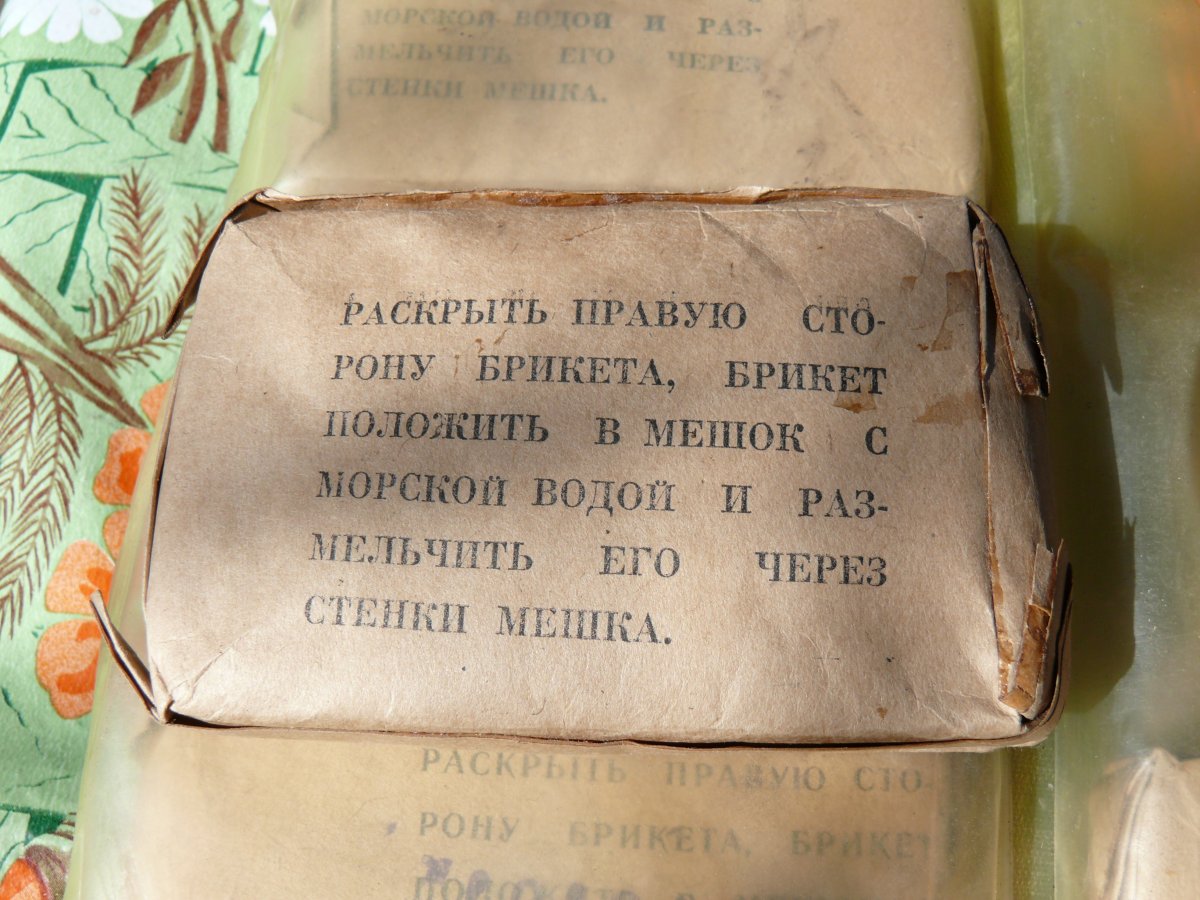 МОРСКОЙ ВОДОЙ И РАЗ-
МЕЛЬЧИТЬ ЕГО ЧЕРЕЗ
СТЕНКИ МЕШКА.
РАСКРЫТЬ ПРАВУЮ СТО-
РОНУ БРИКЕТА, БРИКЕТ
ПОЛОЖИТЬ В МЕШОК С
МОРСКОЙ ВОДОЙ И РАЗ-
МЕЛЬЧИТЬ ЕГО ЧЕРЕЗ
СТЕНКИ МЕШКА.
РАСКРЫТЬ ПРАВУЮ СТО-
РОНУ БРИКЕТА, БРИКЕТ